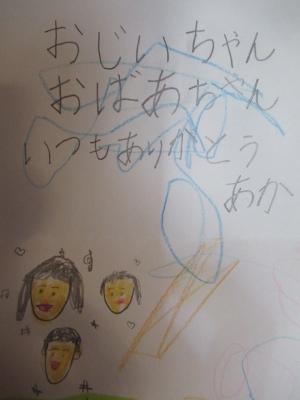 おじいちゃん
おばあちゃん
いつもありがとう
あか